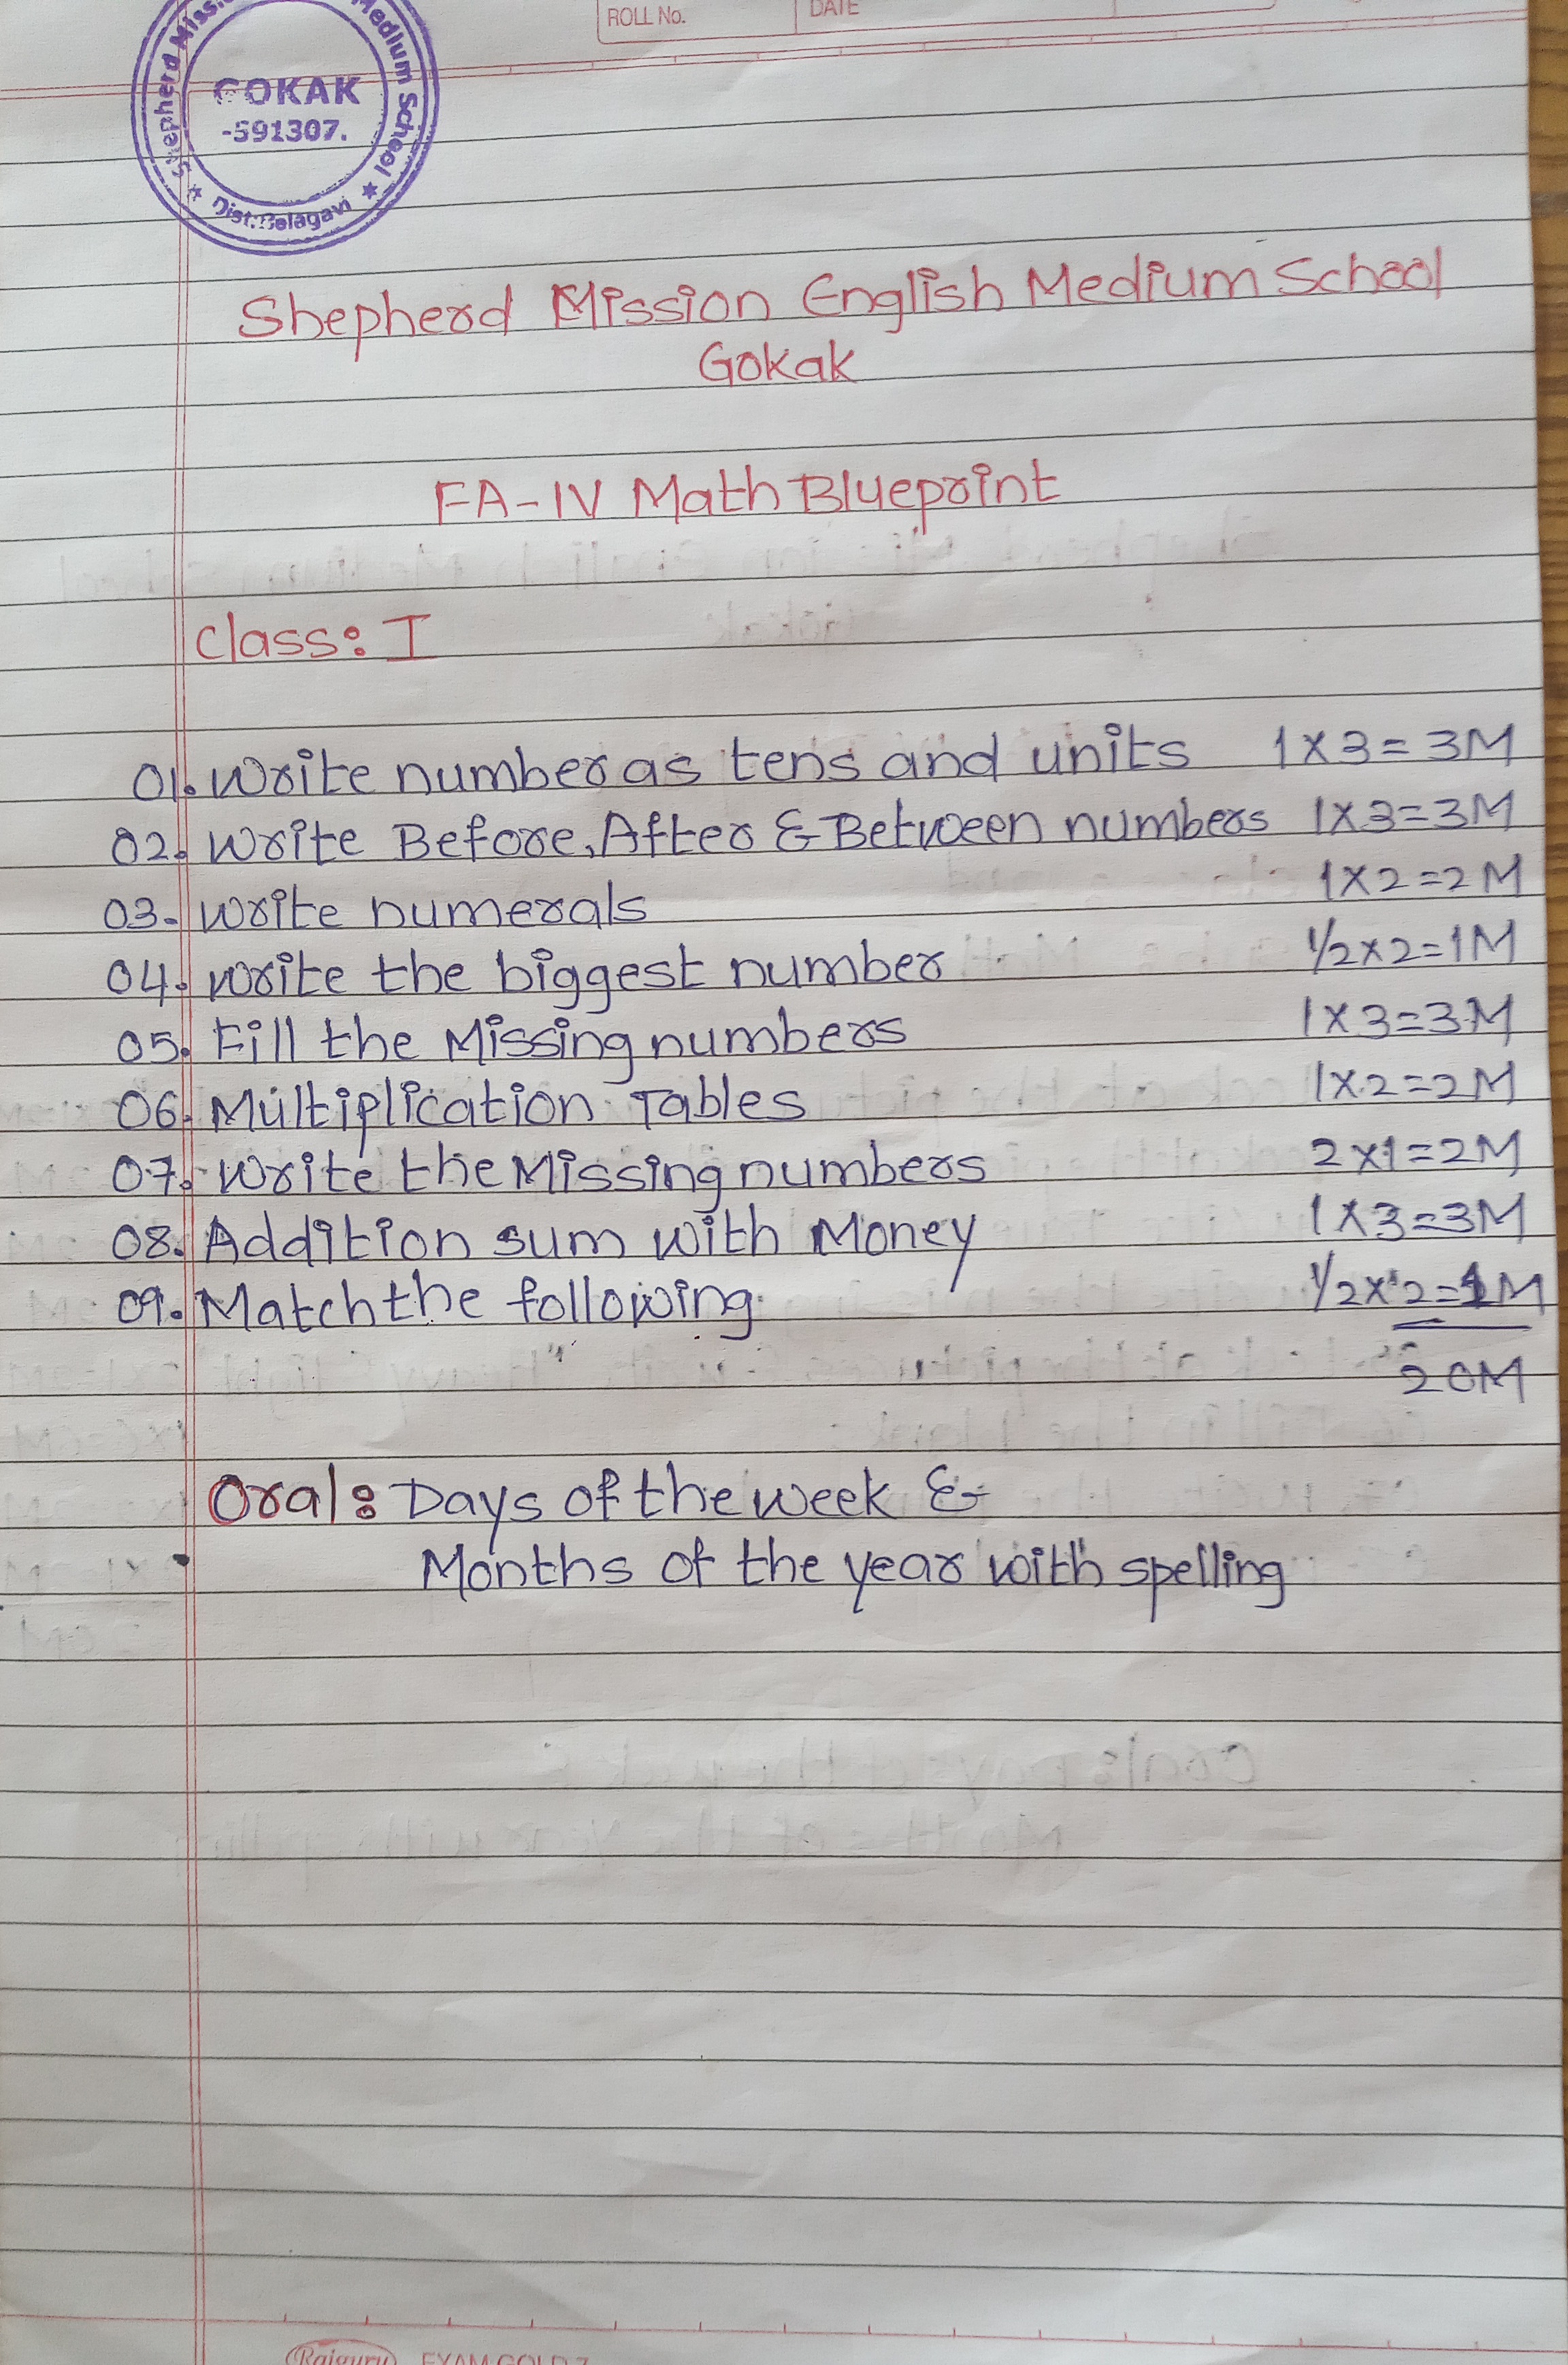 ROLL No.
DATE
Shepherd Medium School
GOKAK
-591307.
Dist. Belagavi
Shepherd Mission English Medium School
Gokak
FA-IV Math Blueprint
Class: I
01. Write number as tens and units 1 X 3 = 3M
02. Write Before, After & Between numbers 1X3=3M
03. Write numerals 1X2=2M
04. Write the biggest number 1/2x2=1M
05. Fill the Missing numbers 1X3=3M
06. Multiplication Tables 1X2=2M
07. Write the Missing numbers 2x1=2M
08. Addition sum with Money 1X3=3M
09. Match the following 1/2x2=1M
20M
Oral: Days of the week &
Months of the year with spelling
Rajguru EXAM GOLD 7